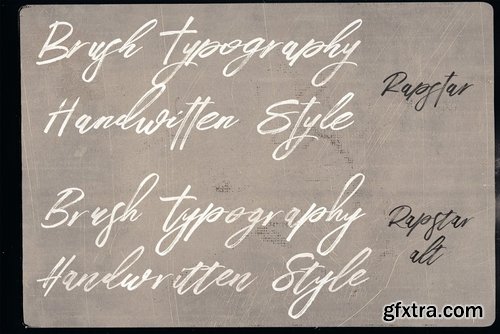 Brush Typography
Handwitten Style
Rapstar
Brush typography
Handwritten Style
Rapstar
alt
gfxtra.com